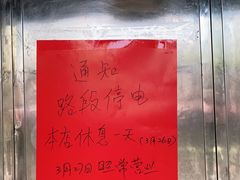 通知
路段停电
本店休息一天(3月26日)
3月27日 照常营业